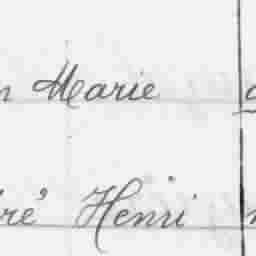 n Marie
ré Henri